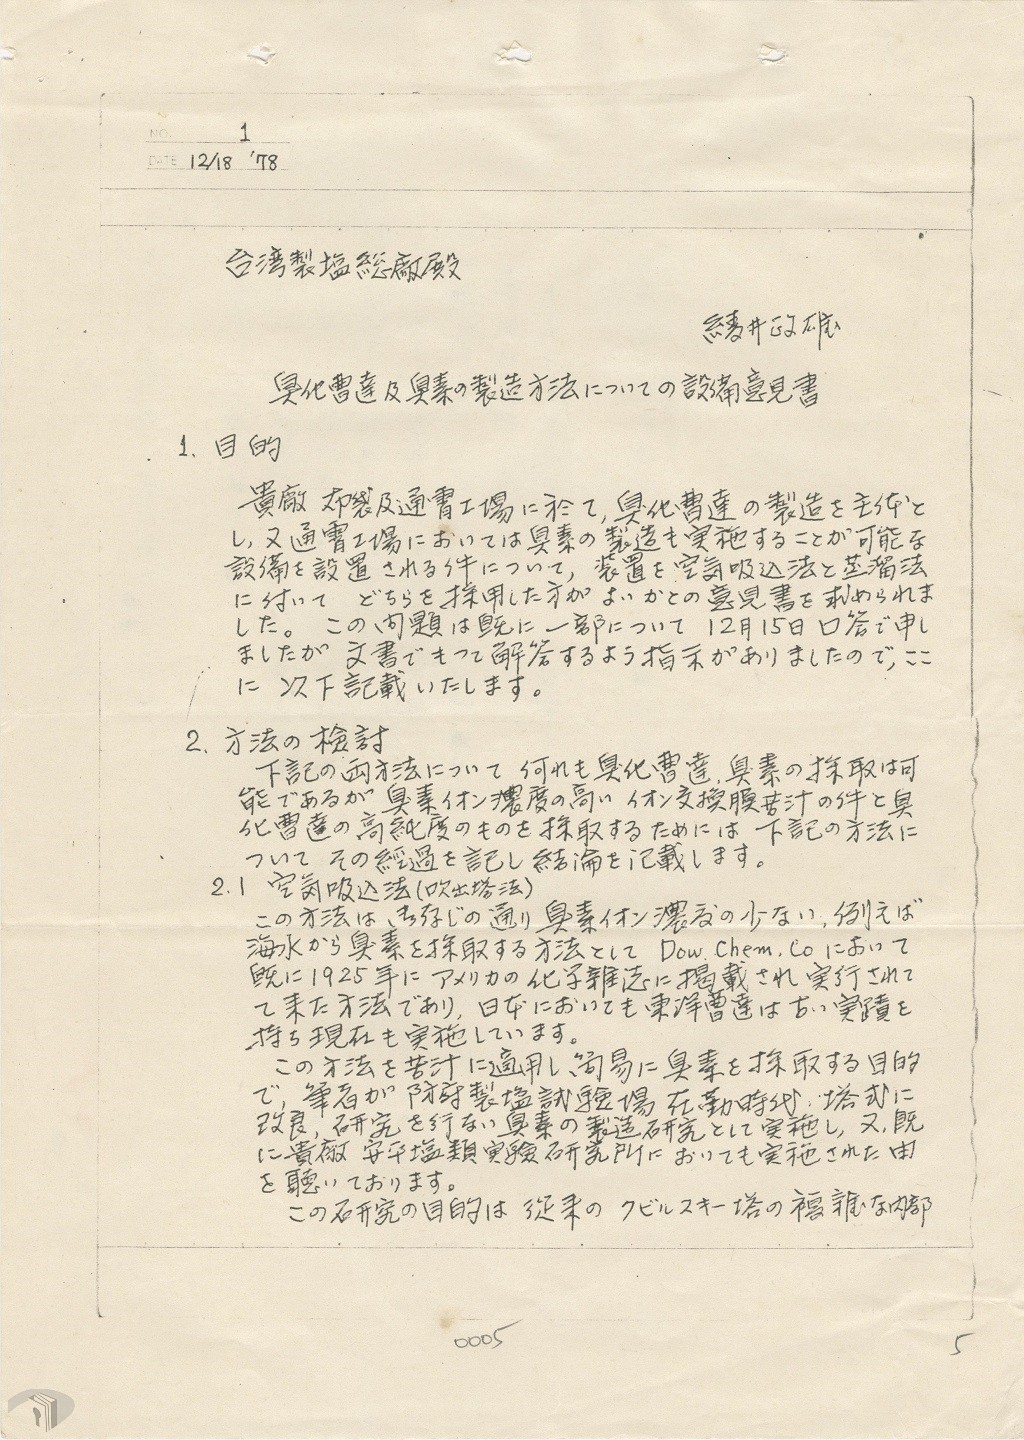 NO. 1
DATE 12/18 '78
台湾製塩総廠殿
綾井政雄
臭化曹達及臭素の製造方法についての設備意見書
1. 目的
貴廠 布袋及通霄工場に於て, 臭化曹達の製造を主体と
し, 又通霄工場においては臭素の製造も実施することが可能な
設備を設置される件について, 装置を空気吸込法と蒸溜法
に付いて どちらを採用した方がよいかとの意見書を求められま
した。 この問題は既に一部について 12月15日口答で申し
ましたが 文書でもつて解答するよう指示がありましたので, ここ
に 以下記載いたします。
2. 方法の検討
下記の両方法について 何れも臭化曹達, 臭素の採取は可
能であるが 臭素イオン濃度の高い イオン交換膜苦汁の件と臭
化曹達の高純度のものを採取するためには 下記の方法に
ついて その経過を記し結論を記載します。
2.1 空気吸込法(吹出塔法)
この方法は 御存じの通り 臭素イオン濃度の少ない, 例えば
海水から臭素を採取する方法として Dow. Chem. Co において
既に1925年に アメリカの化学雑誌に掲載され 実行されて
て来た方法であり, 日本においても東洋曹達は古い実蹟を
持ち現在も実施しています。
この方法を苦汁に適用し, 簡易に臭素を採取する目的
で, 筆者が 防府製塩試験場 在勤時代 塔式に
改良, 研究を行ない 臭素の製造研究として実施し, 又, 既
に貴廠 安平塩類実験研究所においても実施された由
を聴いております。
この研究の目的は 従来の クビルスキー塔の複雑な内部
0005
5